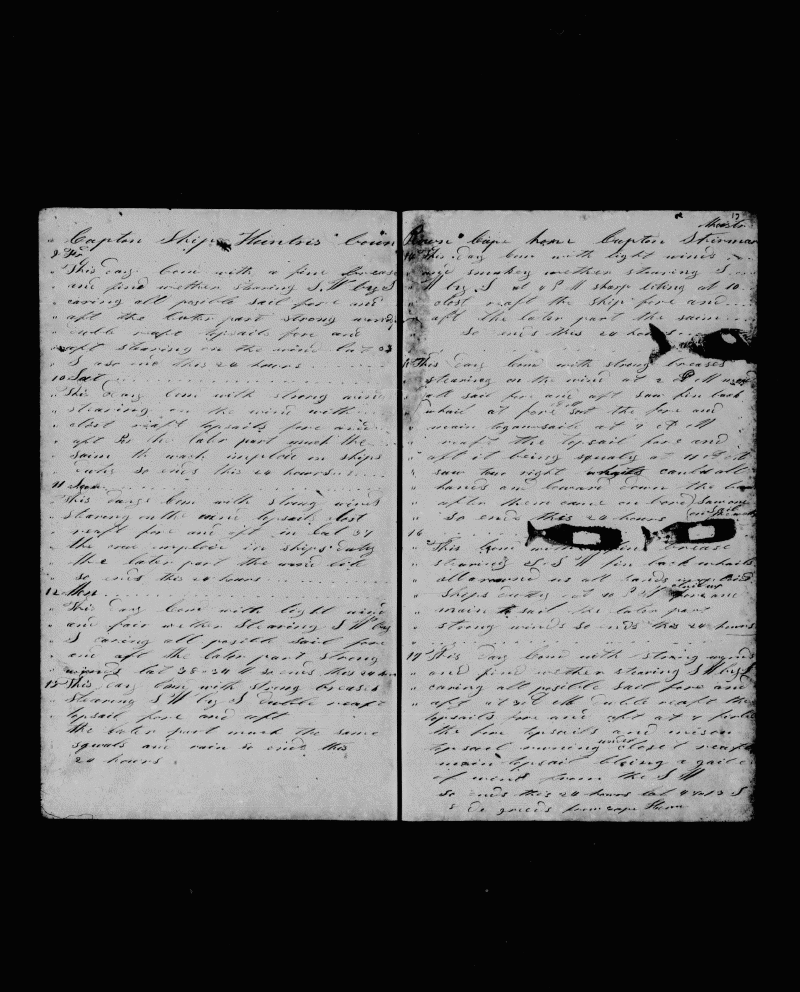 Capton Ship Huntris boun
9 Fri
This day Com with a fine brease
and fine wether stearing S W by S
caring all posible sail fore and
aft the later part strong winds
duble reaft topsails fore and
aft stearing on the wind lat 33
S so ends this 24 hours
10 Sat
This day Com with strong wind
stearing on the wind with
clost reaft topsails fore and
aft the later part much the
same the wach imploie on ships
duty so ends this 24 hours
11
This day Com with strong winds
stearing on the wind topsails clost
reaft fore and aft in lat 37
the crew imploie in ships duty
the later part the wind
so ends this 24 hours
12
This day Com with light wind
and fair wether Stearing S W by
S caring all posible sail fore
and aft the later part strong
winds lat 38-34 so ends this 24
13 This day Com with strong breases
Stearing S W by S duble reaft
topsail fore and aft
the later part much the same
squals and rain so ends this
24 hours
17
Cape horn Capton Sherman
14 This day Com with light winds
and smokey wether stearing S
W by S at 4 P M at 10
clost reaft the ship fore and
aft the later part the same
So ends this 24 hours
15 This day Com with strong breases
stearing on the wind at 2 P M
all sail fore and aft saw fin back
whail at four the fore and
main at 7 P M
reaft the topsail fore and
aft it being squaly at 11
saw two right whails called all
hands and loward down the
after them came on bord Saw one
so ends this 24 hours
16
This Com with brease
stearing S S W fin back whails
all around us all hands
Ships duty at 10 P M fore and
main sail the later part
strong winds so ends this 24 hours
17 This day Com with strong winds
and fine wether stearing S W by S
caring all posible sail fore and
aft at duble reaft the
topsails fore and aft at 7
the fore topsails and mison
topsail running under clost reaft
main topsail bloing a gail
of wind from the S W
so ends this 24 hours lat S
de greeds from cape Horn